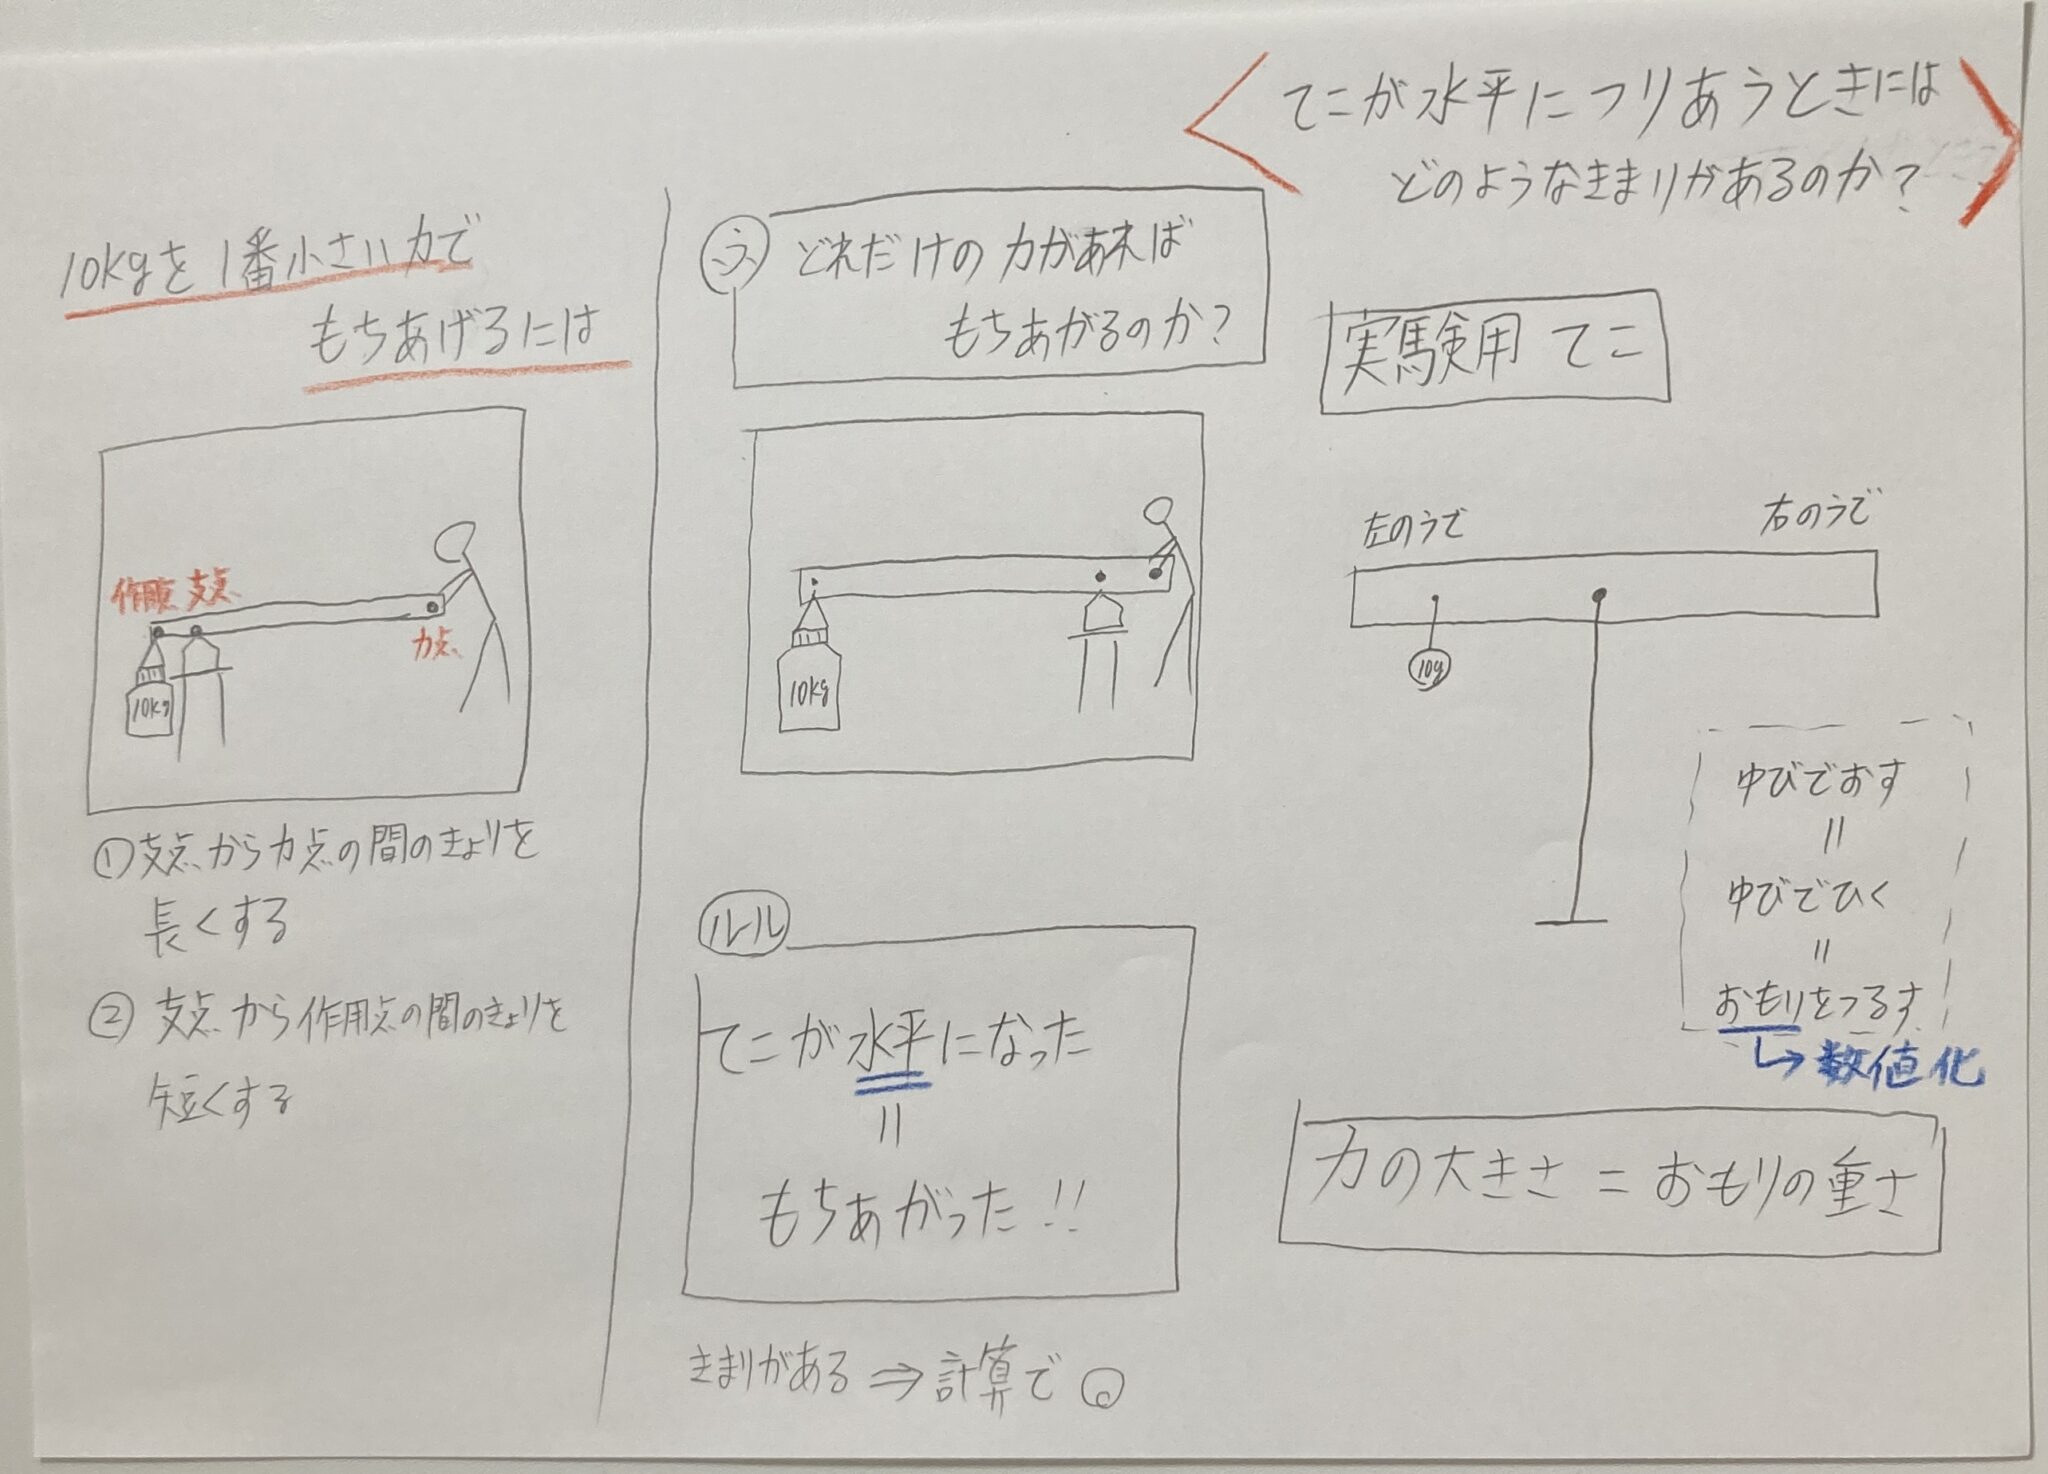 10kgを1番小さい力で
もちあげるには
作用点 支点
力点
10kg
①支点から力点の間のきょりを
長くする
② 支点から作用点の間のきょりを
短くする
どれだけの力があれば
もちあがるのか?
10kg
ルール
てこが水平になった
=
もちあがった!!
きまりがある ⇒ 計算で
てこが水平につりあうときには
どのようなきまりがあるのか?
実験用 てこ
左のうで
右のうで
10g
ゆびでおす
=
ゆびでひく
=
おもりをつるす
↳ 数値化
力の大きさ = おもりの重さ